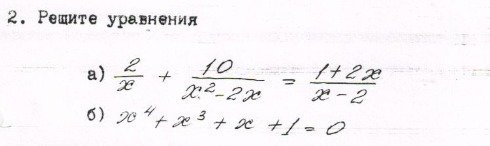 2. Решите уравнения
а) 2/x + 10/(x² - 2x) = (1 + 2x)/(x - 2)
б) x⁴ + x³ + x + 1 = 0